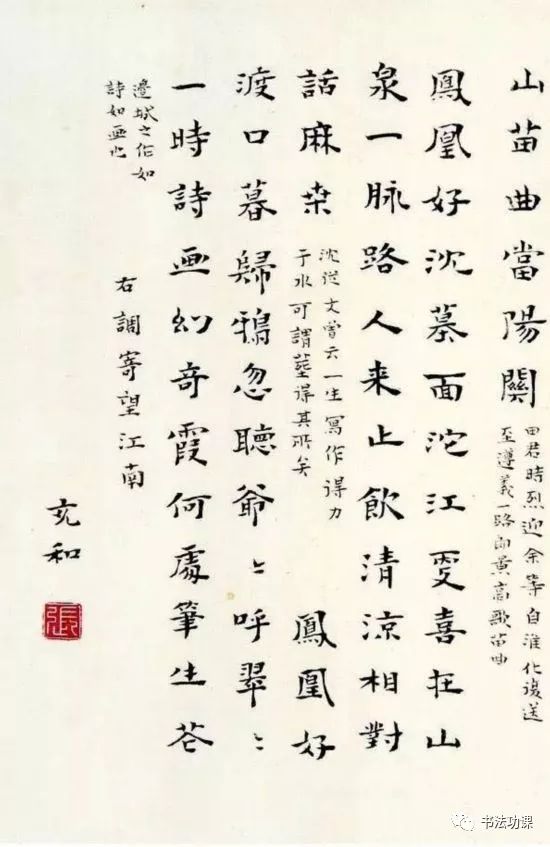 山苗曲當陽關
田君時烈迎余等自淮化復送
至遵義一路高歌苗曲
鳳凰好沈墓面沱江更喜在山
泉一脉路人来止飲清涼相對
話麻桒
沈從文曾云一生寫作得力
于水可謂塟得其所矣
鳳凰好
渡口暮歸鴉忽聽爺〻呼翠〻
一時詩画幻奇霞何處筆生花
邊城之作如
詩如画也
右調寄望江南
充和
張
书法功课